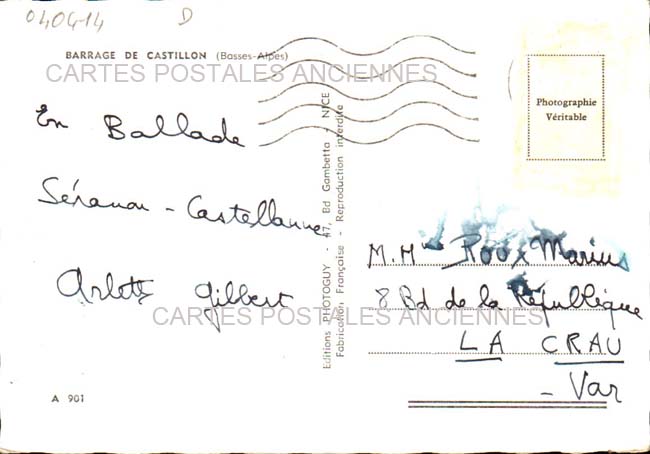 040414 D
BARRAGE DE CASTILLON (Basses-Alpes)
CARTES POSTALES ANCIENNES
En Ballade
Séranon - Castellanne
Arlette Gilbert
CARTES POSTALES ANCIENNES
A 901
Editions PHOTOGUY - 47, Bd Gambetta - NICE
Fabrication Française - Reproduction interdite
Photographie
Véritable
M. Mme Roux Marius
8 Bd de la République
LA CRAU
- Var